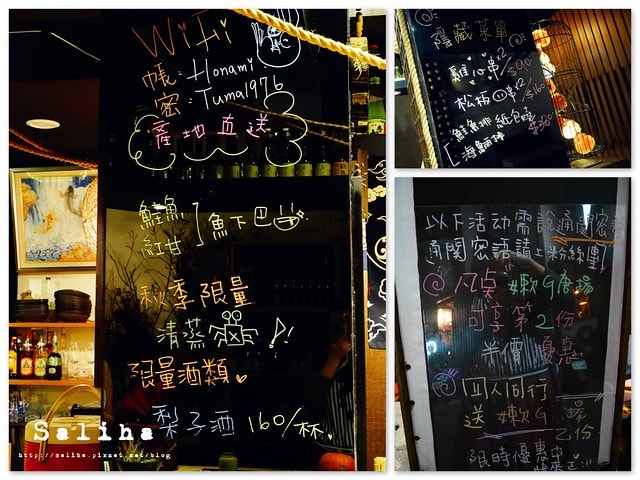 WiFi
帳:Honami
密:Tuma1976
產地直送
鮭魚
紅甘
魚下巴
秋季限量
清蒸
限量酒類
梨子酒 160/杯
Saliha
http://saliha.pixnet.net/blog
隱藏菜單
雞心串x2
松板串x2/$160
鮭魚排紙包燒
海鯛排 $380
以下活动需說通關密語
通關密語請上粉絲團
凡点嫩G唐揚
可享第2份
半價優惠
四人同行
送嫩G 揚
乙份
限時優惠中